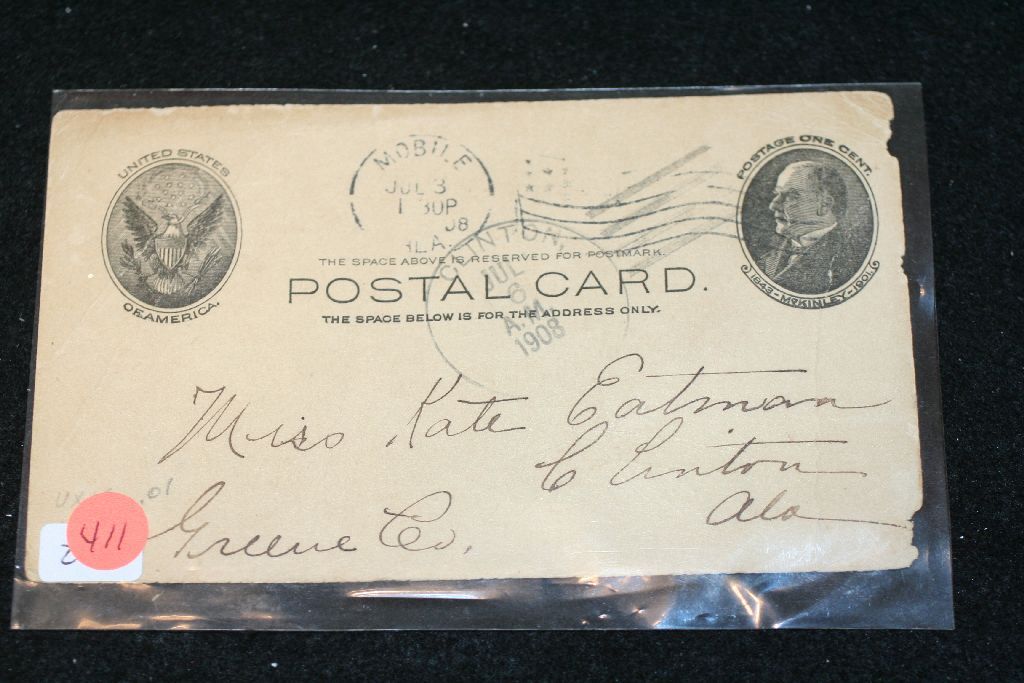 UNITED STATES
OF AMERICA.
MOBILE
JUL 3
1 30P
08
ALA.
POSTAGE ONE CENT.
1843-McKINLEY-1901
CLINTON,
JUL
6
A.M.
1908
THE SPACE ABOVE IS RESERVED FOR POSTMARK.
POSTAL CARD.
THE SPACE BELOW IS FOR THE ADDRESS ONLY.
Miss Kate Eatman
Clinton
Greene Co. Ala
.01
411